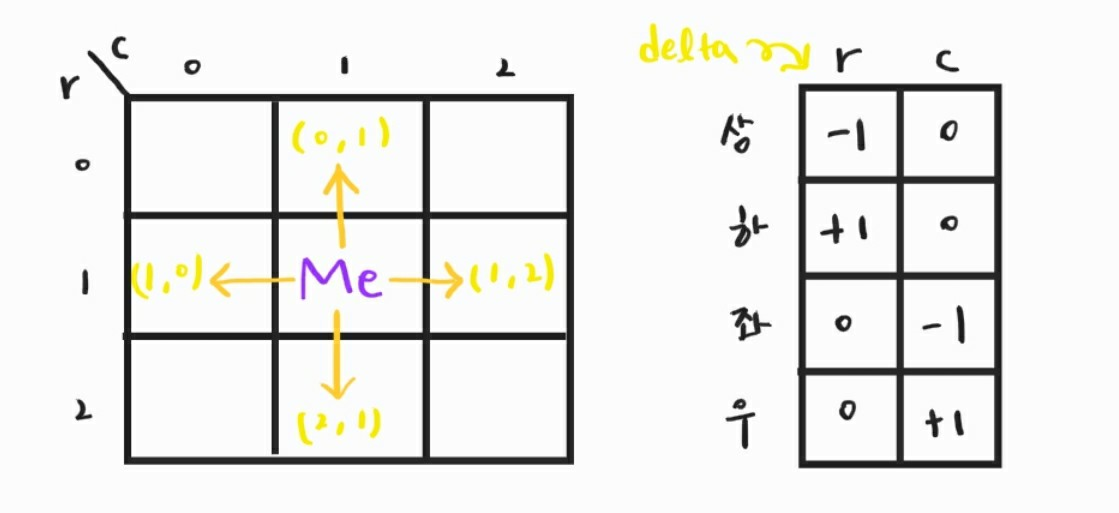 c
r
0 1 2
0
(0,1)
1
(1,0) Me (1,2)
2
(2,1)
delta
r c
상 -1 0
하 +1 0
좌 0 -1
우 0 +1